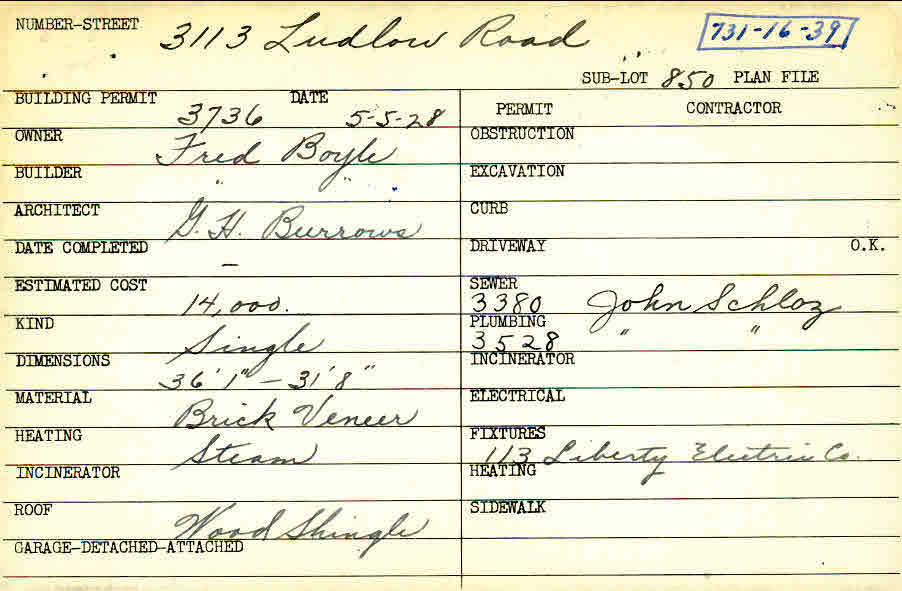 NUMBER-STREET 3113 Ludlow Road 731-16-39
SUB-LOT 850 PLAN FILE
BUILDING PERMIT 3736 DATE 5-5-28
OWNER Fred Boyle
BUILDER " "
ARCHITECT G. H. Burrows
DATE COMPLETED –
ESTIMATED COST 14,000.
KIND Single
DIMENSIONS 36' 1" – 31' 8"
MATERIAL Brick Veneer
HEATING Steam
INCINERATOR
ROOF Wood Shingle
GARAGE-DETACHED-ATTACHED
PERMIT CONTRACTOR
OBSTRUCTION
EXCAVATION
CURB
DRIVEWAY O.K.
SEWER 3380 John Schloz
PLUMBING 3528 " "
INCINERATOR
ELECTRICAL
FIXTURES 113 Liberty Electric Co.
HEATING
SIDEWALK